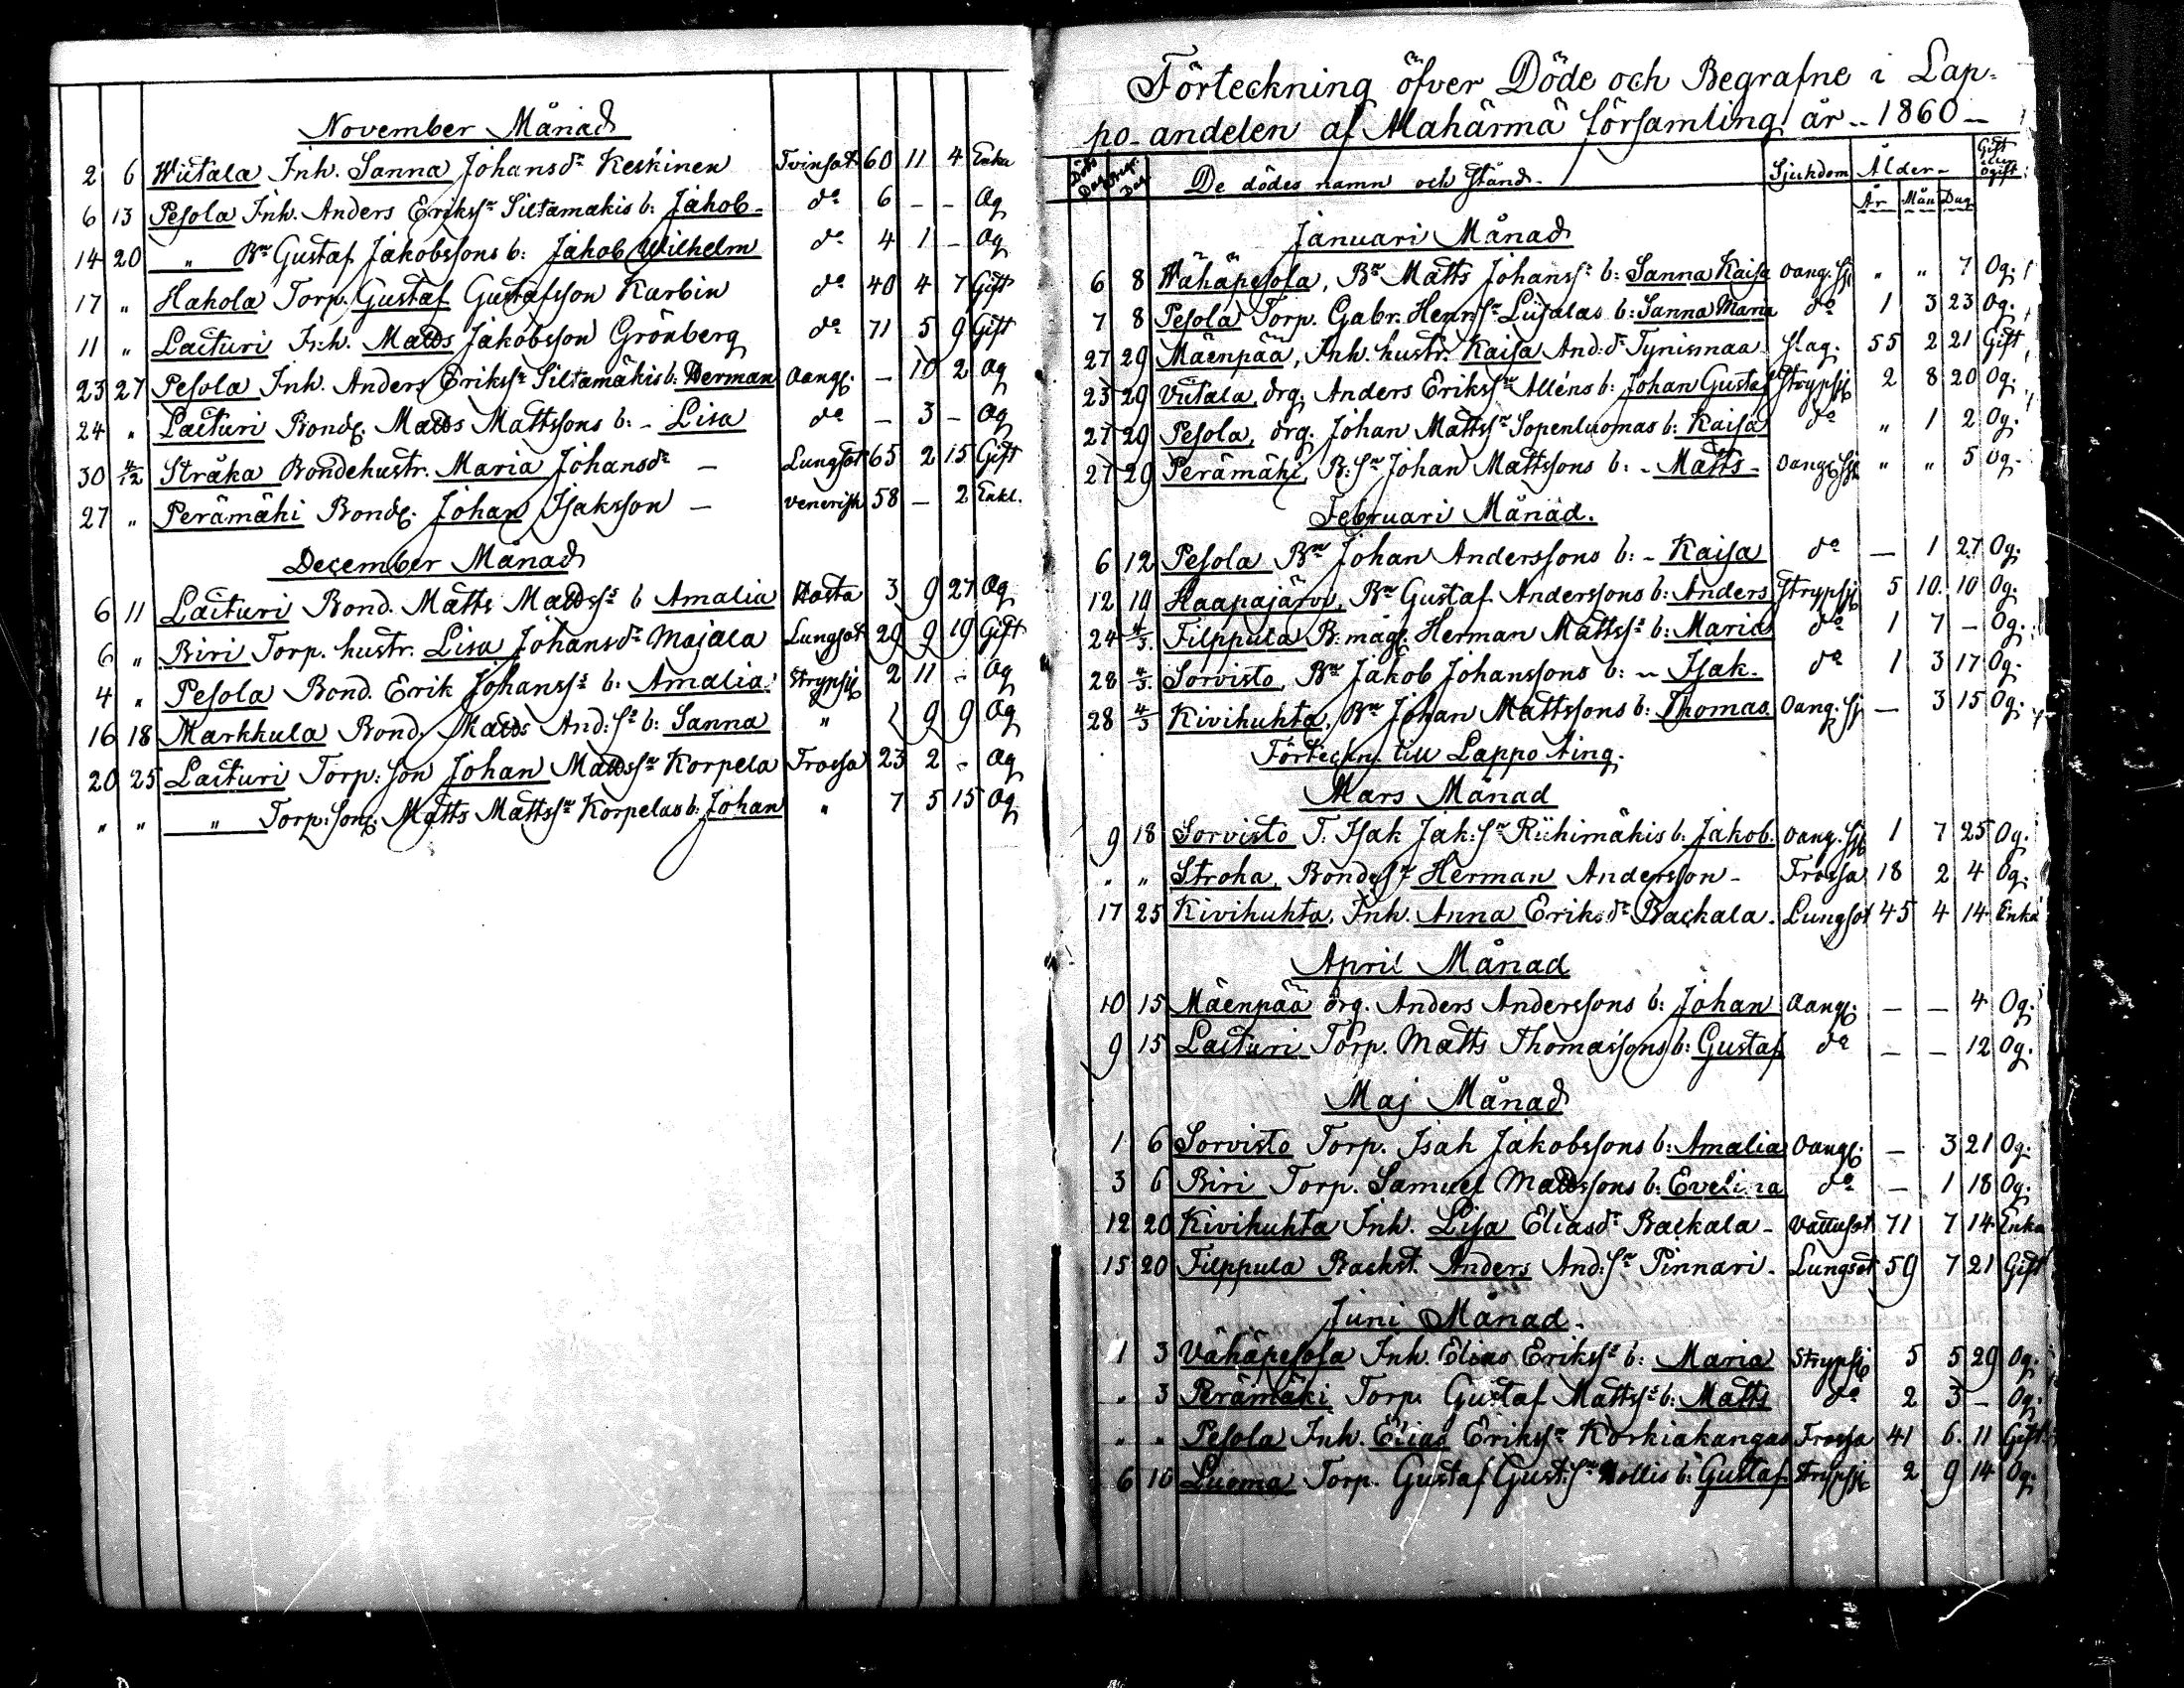 November Månad
2 6 Wiitala Inh. Sanna Johansdr Keskinen Tvinsot 60 11 4 Enka
6 13 Pesola Inh. Anders Erikssr Siltamäkis b: Jakob - do 6 - - Og
14 20 " Bn Gustaf Jakobssons b: Jakob Wilhelm do 4 1 - Og
17 " Hakola Torp. Gustaf Gustafsson Karbin do 40 4 7 Gift
11 " Laituri Inh. Matts Jakobsson Grönberg do 71 5 9 Gift
23 27 Pesola Inh. Anders Erikssr Siltamäkis b: Herman Oang. - 10 2 Og
24 " Laituri Bond. Matts Mattssons b: - Lisa do - 3 - Og
30 2/12 Stråka Bondehustr. Maria Johansdr - Lungsot 65 2 15 Gift
27 " Perämäki Bond. Johan Isaksson - Venerisk 58 - 2 Enkl.
December Månad
6 11 Laituri Bond. Matts Mattssr b Amalia Hosta 3 9 27 Og
6 " Biri Torp. hustr. Lisa Johansdr Majala Lungsot 29 9 19 Gift
4 " Pesola Bond. Erik Johanssr b: Amalia Strypsj 2 11 - Og
16 18 Markkula Bond. Matts And:sr b: Sanna " 9 9 Og
20 25 Laituri Torp: son Johan Mattssn Korpela Frossa 23 2 - Og
" " " Torp: son: Matts Mattssn Korpelas b: Johan " 7 5 15 Og
Förteckning öfver Döde och Begrafne i Lap-
po-andelen af Alahärmä församling år - 1860 -
Döds Dag Begr. Dag De dödes namn och stånd - Sjukdom Ålder - Gift eller ogift
År Mån Dag
Januari Månad
6 8 Wähäpesola, Bn Matts Johanssr b: Sanna Kaisa Oang. sj " " 7 Og.
7 8 Pesola Torp. Gabr. Henr:sn Luisalas b: Sanna Maria do 1 3 23 Og.
27 29 Mäenpää, Inh. hustr. Kaisa And:dr Tynismaa Slag. 55 2 21 Gift
23 29 Viitala, örg. Anders Erikssn Alléns b: Johan Gustaf Strypsj 2 8 20 Og.
27 29 Pesola, örg. Johan Mattssn Sopenluomas b: Kaisa do " 1 2 Og.
27 29 Perämäki, B: sn Johan Mattssons b: - Matts - Oang. sj " " 5 Og.
Februari Månad.
6 12 Pesola Bn Johan Anderssons b: - Kaisa do - 1 27 Og.
12 19 Haapajärvi, Bn Gustaf Anderssons b: Anders Strypsj 5 10. 10 Og.
24 4/3. Filppula B: måg. Herman Mattssr b: Maria do 1 7 - Og.
28 4/3. Sorvisto, Bn Jakob Johanssons b: - Isak - do 1 3 17 Og.
28 4/3 Kivihuhta, Bn Johan Mattssons b: Thomas Oang. sj - 3 15 Og.
Förteckn. till Lappo ting.
Mars Månad
9 18 Sorvisto T. Isak Jak:sn Riihimäkis b: Jakob Oang. sj 1 7 25 Og.
" " Stroha, Bondesn Herman Andersson - Frossa 18 2 4 Og.
17 25 Kivihuhta, Inh. Anna Eriksdr Backala. Lungsot 45 4 14 Enka
April Månad
10 15 Mäenpää örg. Anders Anderssons b: Johan Oang. - - 4 Og.
9 15 Laituri Torp. Matts Thomassons b: Gustaf do - - 12 Og.
Maj Månad
1 6 Sorvisto Torp. Isak Jakobssons b: Amalia Oang. - 3 21 Og.
3 6 Biri Torp. Samuel Mattssons b: Evelina do - 1 18 Og.
12 20 Kivihuhta Inh. Lisa Eliasdr Backala - Vattusot 71 7 14 Enka
15 20 Filppula Backst. Anders And:sn Pinnari - Lungsot 59 7 21 Gift
Juni Månad.
1 3 Vähäpesola Inh. Elias Erikssr b: Maria Strypsj 5 5 29 Og.
" 3 Perämäki Torp. Gustaf Mattssr b: Matts do 2 3 - Og.
" " Pesola Inh. Elias Erikssn Korkiakangas Frossa 41 6. 11 Gift
6 10 Luoma Torp. Gustaf Gust:sn b: Gustaf Strypsj 2 9 14 Og.